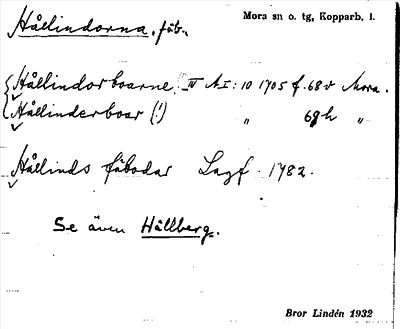 Hållindorna, fäb.
Mora sn o. tg, Kopparb. l.
Hållindorboarne, IV AI:10 1705 f. 68v Mora.
Hållinderboar (!) " 69h "
Hållinds fäbodar Lagf. 1782.
Se även Hållberg.
Bror Lindén 1932